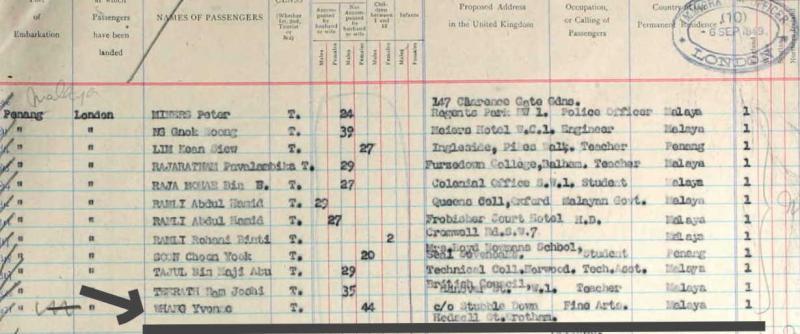 Port at which Proposed Address Occupation, Country of
of Passengers NAMES OF PASSENGERS CLASS (Whether 1st, 2nd, Tourist or 3rd) Accompanied by husband or wife Not Accompanied by husband or wife Children between 1 and 12 Infants in the United Kingdom or Calling of Permanent Residence
Embarkation have been landed Males Females Males Females Males Females Males Females Passengers
IMMIGRATION OFFICER (10) 6 SEP 1949 LONDON
Malaya
147 Clarence Gate Gdns.
Penang London MINERS Peter T. 24 Regents Park NW 1. Police Officer Malaya 1
" " NG Gnok T. 39 Meiers Hotel W.C.1. Engineer Malaya 1
" " LIM Kean Siew T. 27 Ingleside, Teacher Penang 1
" " RAJARATNAM Puvalambika T. 29 Furzedown College, Balham. Teacher Malaya 1
" " RAJA MOHAR Bin B. T. 27 Colonial Office S.W.1. Student Malaya 1
" " RAMLI Abdul Hamid T. 29 Queens Coll, Oxford Malayan Govt. Malaya 1
" " RAMLI Abdul Hamid T. 27 Frobisher Court Hotel H.D. Malaya 1
" " RAMLI Rohani Binti T. 2 Cromwell Rd. S.W.7 Malaya 1
Mrs. Boyd School,
" " SOON Choon Yook T. 20 Seal Sevenoaks. Student Penang 1
" " TAJUL Bin Haji Abu T. 29 Technical Coll. Norwood. Tech. Asst. Malaya 1
" " Ram Joshi T. 35 British Council, W.1. Teacher Malaya 1
" " WHANG Yvonne T. 44 c/o Stubble Down Fine Arts. Malaya 1
St. Wrotham.